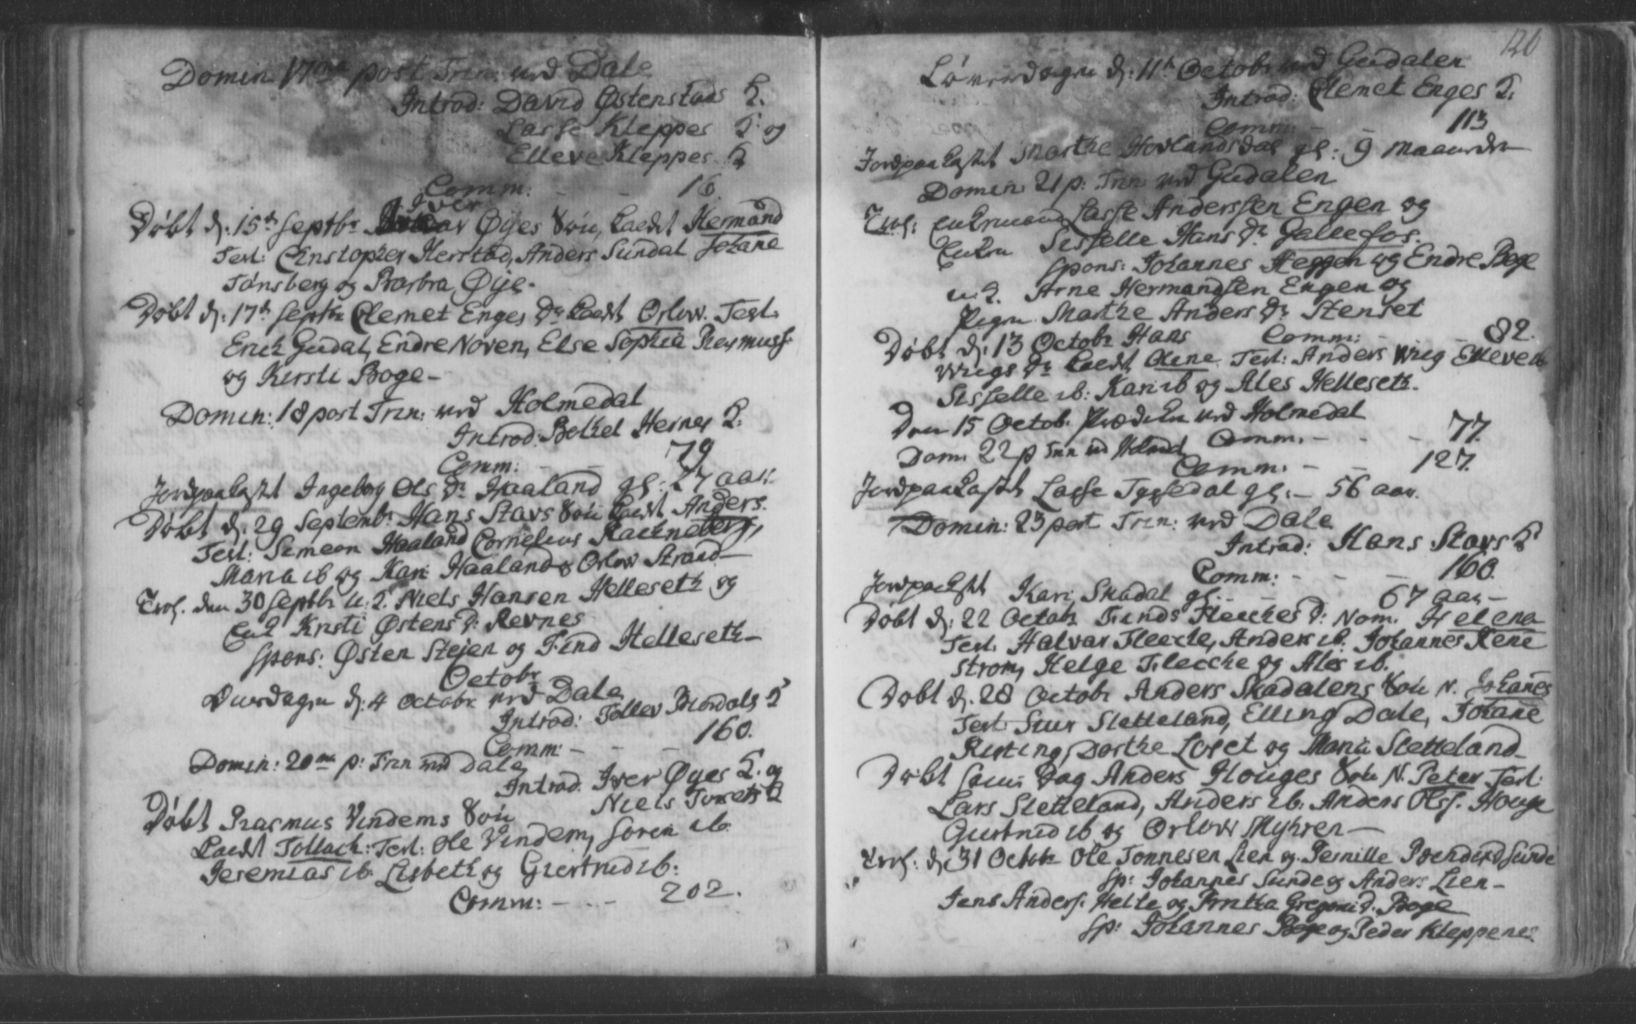 Domin 17me post Trin: ved Dale
Introd: David Østenstads K.
Lasse Kleppes K. og
Elleve Kleppes K
Comm: - - 16
Iver
Døbt d: 15de Septbr Øyes Søn, kaldt Hermand
Test: Christopher Herstad, Anders Sundal Johane
Tønsberg og Barbra Øye.
Døbt d: 17de Septbr Clemet Enges Dr kaldt Orlow. Test.
Erich Gudal, Endre Noven, Else Sophia Rasmusf:
og Kirsti Boge -
Domin: 18 post Trin: ved Holmedal
Introd. Botel Hernes K.
Comm: - - 79
Jordpaakastet Ingeborg Ols Dr Haaland gl: 27 aar.
Døbt d: 29 Septembr Hans Stavs Søn kaldt Anders.
Test: Simeon Haaland Cornelius Rachneberg,
Maria ib og Kari Haaland & Orlow Strand -
Trol. den 30 Septbr u: K. Niels Hansen Helleseth og
Kirsti Østens Dr Revnes
Spons: Østen Steien og Find Helleseth -
Octobr
Onsdagen d: 4 Octobr ved Dale
Introd: Tollev K
Comm: - - - 160.
Domin: 20me p: Trin ved Dale
Introd. Iver Øyes K. og
Niels K
Døbt Rasmus Vindems Søn
kaldt Tollach: Test: Ole Vindem, Søren ib.
Jeremias ib. Lisbeth og Giertrud ib:
Comm: - - - 202.
120
Løverdagen d: 11te Octobr ved Gudalen
Introd: Clemet Enges K.
Comm: - - 113
Jordpaakastet Marthe Hovlandsdal gl: 9 Maaneder
Domin 21 p: Trin ved Gudalen
Trol: Enkemand Lasse Anderssen Engen og
Enken Sisselle Hans Dr Gallefos.
Spons: Johannes Heggen og Endre Boge
u. K. Arne Hermandsen Engen og
Pigen Marthe Anders Dr Stenset
Comm: - - 82.
Døbt d: 13 Octobr Hans
Wiigs Dr kaldt Oline Test: Anders Wiig Elleve ib
Sisselle ib: Kari ib og Ales Helleseth.
Den 15 Octob. Prædiken ved Holmedal
Comm. - - - 77.
Dom: 22 p Trin ved
Comm: - - 127.
Jordpaakastet Lasse Tyssedal gl: - 56 aar.
Domin: 23 post Trin: ved Dale
Introd: Hans Stavs K
Comm: - - - 160.
Jordpaakastet Kari Skadal gl: - - 67 aar -
Døbt d: 22 Octobr Finds Fleeches Dr Nom. Helena
Test. Halvar Fleeche, Anders ib. Johannes Rene
Strom, Helge Fleeche og Ales ib.
Døbt d. 28 Octobr Anders Skadalens Søn N. Johanes
Test. Siur Sletteland, Elling Dale, Johane
Risting, Dorthe Loset og Maria Sletteland -
Døbt samme Dag Anders Houges Søn N. Peter Test:
Lars Sletteland, Anders ib. Anders Olss. Houge
Giertrud ib og Orlow Myhren -
Trol: d: 31 Octobr Ole Tonnesen Lien og Pernille Sunde
Sp: Johannes Sunde og Anders Lien -
Jens Anders. Helle og Gregorii D. Boge
Sp: Johannes Boge og Peder Kleppenes